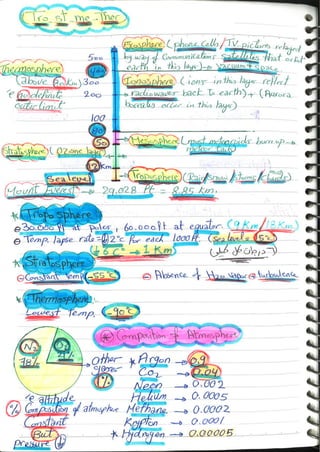 Tro.st.me.ther
Exosphere (phone cells / TV pictures relayed
500 by way of Communications satellites that orbit
earth in this layer) → vacuum + space
Thermosphere
(above 80 km) 300 Ionosphere (ions in this layer reflect
e no definite 200 → radio waves back to earth) + (Aurora
outer limit
borealis occur in this layer)
100
80
50 → Mesosphere (most meteoroids burn up →
Stratosphere (Ozone layer)
Km → Troposphere (Rain/snow/storms/
clouds)
Sea level
Mount Everest → 29.028 Ft = 8.85 Km.
* Troposphere
30.000 ft at poles, 60.000 ft at equator. (9 Km / 18 Km)
Temp. lapse rate = 2°C for each 1000 ft. (Sea level = 15°)
6°C → 1 Km
* Stratosphere
Constant Temp. -55°C Absence of H2O vapour & turbulence
* Thermosphere
Lowest Temp. -90°C
Composition of Atmosphere
N2 O2
78% 21%
other gases 1%
* Argon → 0.9
CO2 → 0.04
Neon → 0.002
e altitude Helium → 0.0005
% Composition of atmosphere Methane → 0.0002
Constant Krypton → 0.0001
But * Hydrogen → 0.00005
pressure ↓